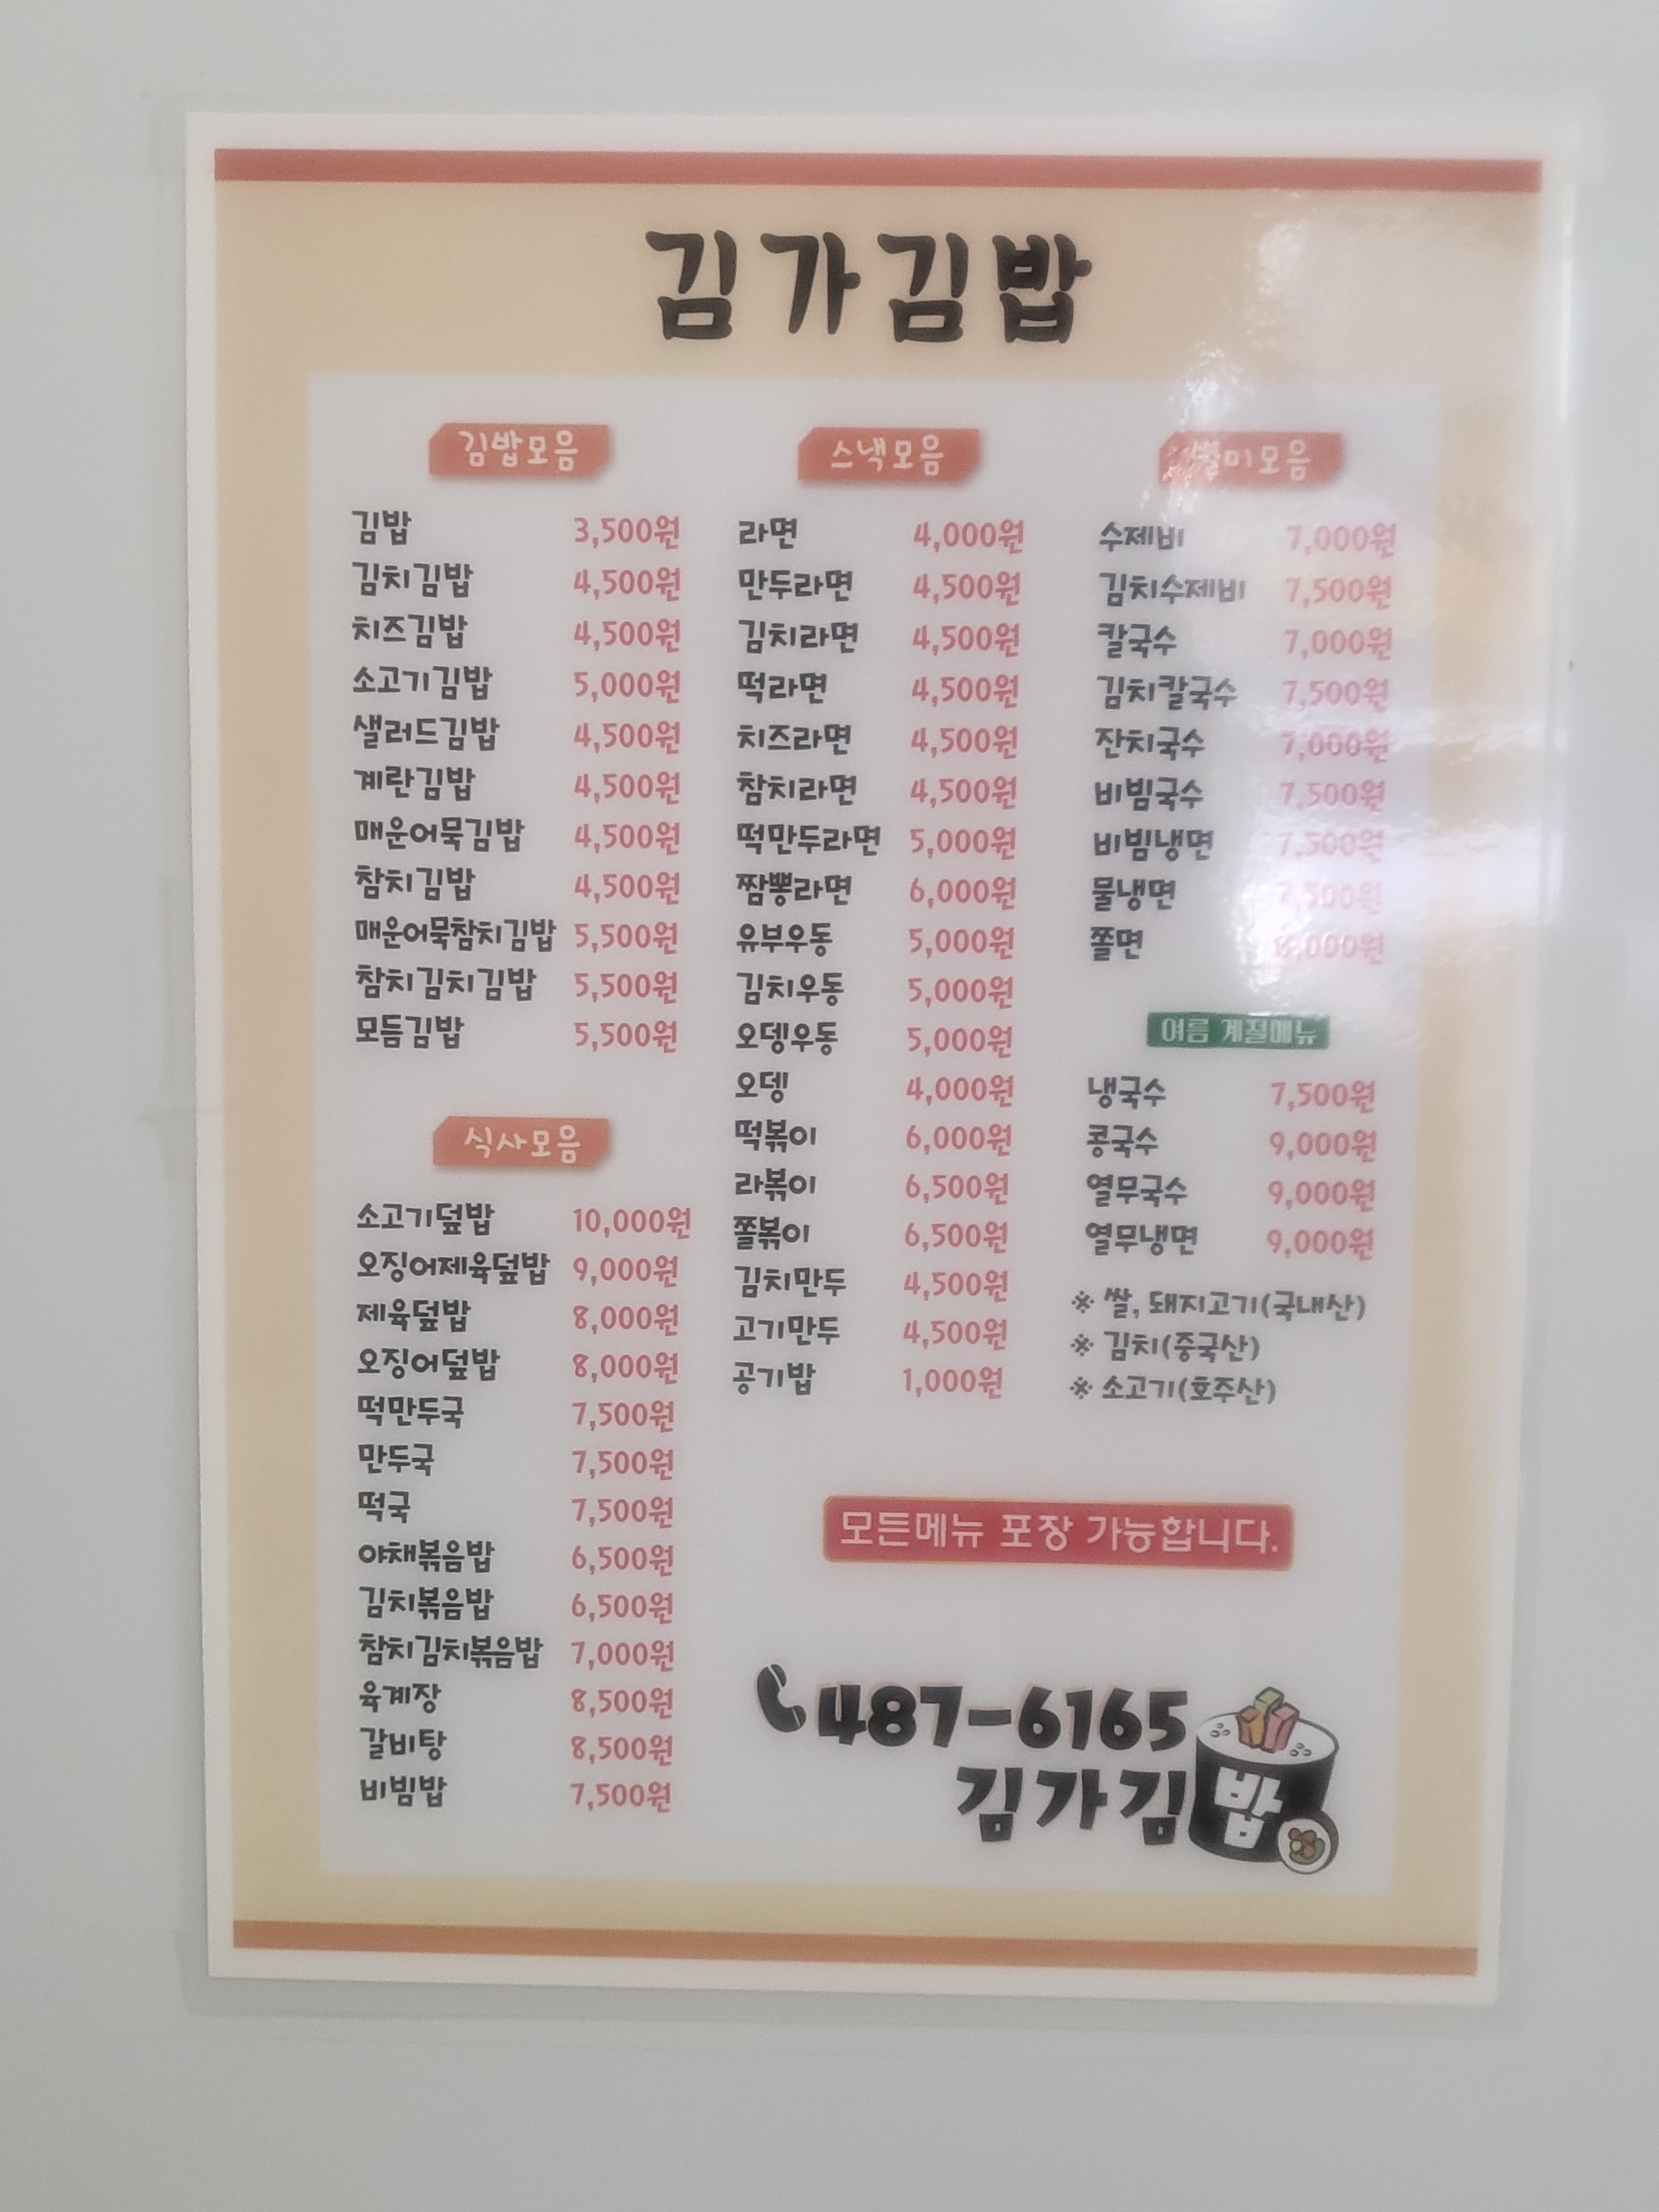 김가김밥
김밥모음
김밥 3,500원
김치김밥 4,500원
치즈김밥 4,500원
소고기김밥 5,000원
샐러드김밥 4,500원
계란김밥 4,500원
매운어묵김밥 4,500원
참치김밥 4,500원
매운어묵참치김밥 5,500원
참치김치김밥 5,500원
모듬김밥 5,500원
식사모음
소고기덮밥 10,000원
오징어제육덮밥 9,000원
제육덮밥 8,000원
오징어덮밥 8,000원
떡만두국 7,500원
만두국 7,500원
떡국 7,500원
야채볶음밥 6,500원
김치볶음밥 6,500원
참치김치볶음밥 7,000원
육계장 8,500원
갈비탕 8,500원
비빔밥 7,500원
스낵모음
라면 4,000원
만두라면 4,500원
김치라면 4,500원
떡라면 4,500원
치즈라면 4,500원
참치라면 4,500원
떡만두라면 5,000원
짬뽕라면 6,000원
유부우동 5,000원
김치우동 5,000원
오뎅우동 5,000원
오뎅 4,000원
떡볶이 6,000원
라볶이 6,500원
쫄볶이 6,500원
김치만두 4,500원
고기만두 4,500원
공기밥 1,000원
별미모음
수제비 7,000원
김치수제비 7,500원
칼국수 7,000원
김치칼국수 7,500원
잔치국수 7,000원
비빔국수 7,500원
비빔냉면 7,500원
물냉면 7,500원
쫄면 8,000원
여름 계절메뉴
냉국수 7,500원
콩국수 9,000원
열무국수 9,000원
열무냉면 9,000원
※ 쌀, 돼지고기(국내산)
※ 김치(중국산)
※ 소고기(호주산)
모든메뉴 포장 가능합니다.
487-6165
김가김밥